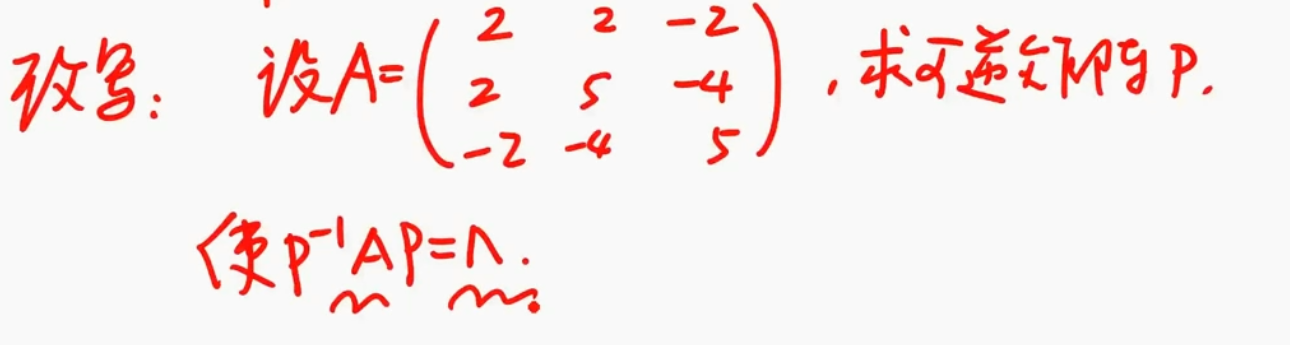 改写: 设A=( 2 2 -2 ; 2 5 -4 ; -2 -4 5 ),求可逆矩阵P.
使P⁻¹AP=Λ.